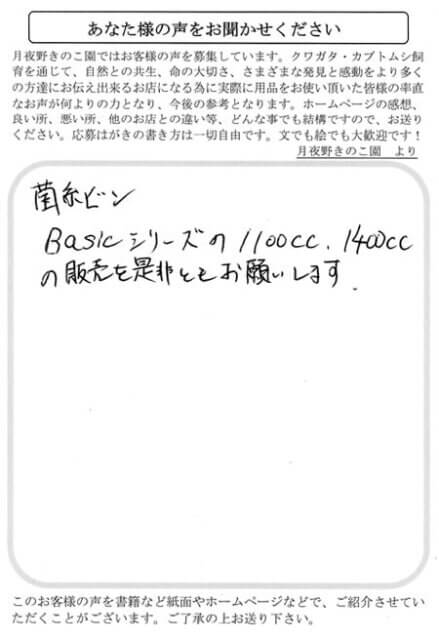 あなた様の声をお聞かせください
月夜野きのこ園ではお客様の声を募集しています。クワガタ・カブトムシ飼
育を通じて、自然との共生、命の大切さ、さまざまな発見と感動をより多く
の方達にお伝え出来るお店になる為に実際に用品をお使い頂いた皆様の率直
なお声が何よりの力となり、今後の参考となります。ホームページの感想、
良い所、悪い所、他のお店との違い等、どんな事でも結構ですので、お送り
ください。応募はがきの書き方は一切自由です。文でも絵でも大歓迎です！
月夜野きのこ園 より
菌糸ビン
Basicシリーズの1100cc、1400cc
の販売を是非ともお願いします。
このお客様の声を書籍など紙面やホームページなどで、ご紹介させてい
ただくことがございます。ご了承の上お送り下さい。